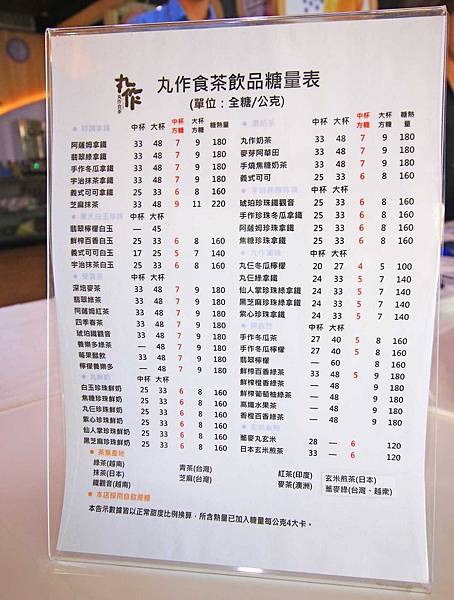 丸作
丸作食茶
丸作食茶飲品糖量表
(單位：全糖/公克)
中杯 大杯 中杯方糖 大杯方糖 糖熱量
阿薩姆拿鐵 33 48 7 9 180
翡翠綠拿鐵 33 48 7 9 180
手作冬瓜拿鐵 33 48 7 9 180
宇治抹茶拿鐵 33 48 7 9 180
義式可可拿鐵 25 33 6 8 160
芝麻抹茶 33 48 9 11 220
中杯 大杯
翡翠檸檬白玉 — 45
鮮榨百香白玉 25 33 6 8 160
義式可可白玉 17 25 5 7 140
宇治抹茶白玉 25 33 6 8 160
中杯 大杯
深焙麥茶 33 48 7 9 180
翡翠綠茶 33 48 7 9 180
阿薩姆紅茶 33 48 7 9 180
四季春茶 33 48 7 9 180
琥珀鐵觀音 33 48 7 9 180
養樂多綠茶 — 48 9 180
莓果醋飲 33 48 7 9 180
檸檬養樂多 — 48 9 180
中杯 大杯
白玉珍珠鮮奶 25 33 6 8 160
焦糖珍珠鮮奶 25 33 6 8 160
丸仨珍珠鮮奶 25 33 6 8 160
紫心珍珠鮮奶 25 33 6 8 160
仙人掌珍珠鮮奶 25 33 6 8 160
黑芝麻珍珠鮮奶 25 33 6 8 160
中杯 大杯 中杯方糖 大杯方糖 糖熱量
丸作奶茶 33 48 7 9 180
麥芽阿華田 33 48 7 9 180
手燒焦糖奶茶 33 48 7 9 180
義式可可 25 33 6 8 160
中杯 大杯
琥珀珍珠鐵觀音 25 33 6 8 160
手作珍珠冬瓜拿鐵 25 33 6 8 160
阿薩姆珍珠拿鐵 25 33 6 8 160
焦糖珍珠拿鐵 25 33 6 8 160
中杯 大杯
丸仨冬瓜檸檬 20 27 4 5 100
丸仨綠拿鐵 24 33 5 7 140
仙人掌珍珠綠拿鐵 24 33 5 7 140
黑芝麻珍珠綠拿鐵 24 33 5 7 140
紫心珍珠拿鐵 24 33 5 7 140
中杯 大杯
手作冬瓜茶 27 40 5 8 160
手作冬瓜檸檬 27 40 5 8 160
翡翠檸檬 — 60 8 160
鮮榨百香綠茶 33 48 5 9 180
鮮榨橙香綠茶 — 48 9 180
鮮榨葡萄柚綠茶 — 48 9 180
高纖水果茶 — 48 9 180
香橙百香綠茶 — 48 9 180
蕎麥丸玄米 28 — 6 120
日本玄米煎茶 33 — 6 120
● 茶葉產地
綠茶(越南) 青茶(台灣) 紅茶(印度) 玄米煎茶(日本)
抹茶(日本) 芝麻(台灣) 麥茶(澳洲) 蕎麥綠(台灣、越南)
鐵觀音(越南)
● 本店採用自飲蔗糖
本告示數據皆以正常甜度比例換算，所含熱量已加入糖量每公克4大卡。